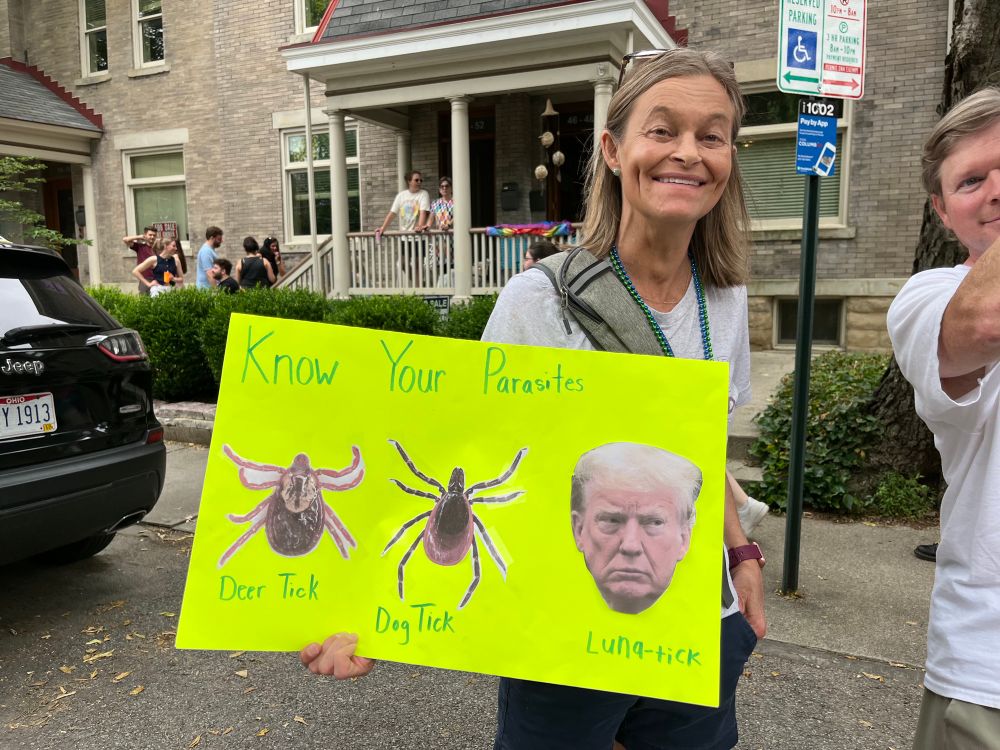 RESERVED
PARKING
10PM-8AM
P
3 HR PARKING
8AM-10PM
1C02
Pay by App
Know Your Parasites
Deer Tick
Dog Tick
Luna-tick
Jeep
OHIO
Y 1913